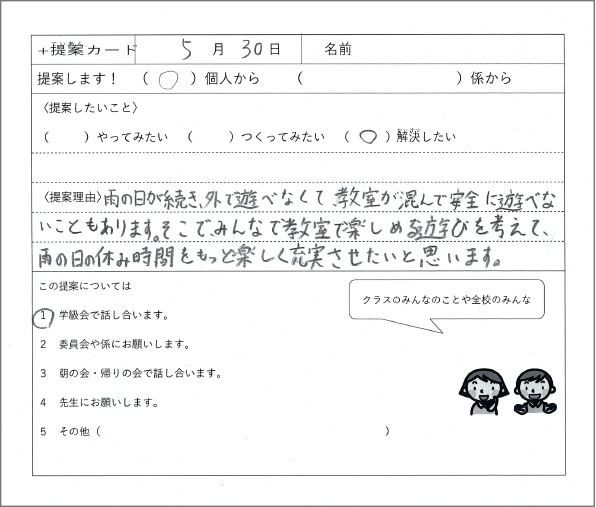 +提案カード 5 月 30 日 名前
提案します！ （ ○ ）個人から （ ）係から
〈提案したいこと〉
（ ）やってみたい （ ）つくってみたい （ ○ ）解決したい
〈提案理由〉雨の日が続き、外で遊べなくて教室が混んで安全に遊べな
いこともあります。そこでみんなで教室で楽しめる遊びを考えて、
雨の日の休み時間をもっと楽しく充実させたいと思います。
この提案については
1 学級会で話し合います。
2 委員会や係にお願いします。
3 朝の会・帰りの会で話し合います。
4 先生にお願いします。
5 その他（ ）
クラスのみんなのことや全校のみんな